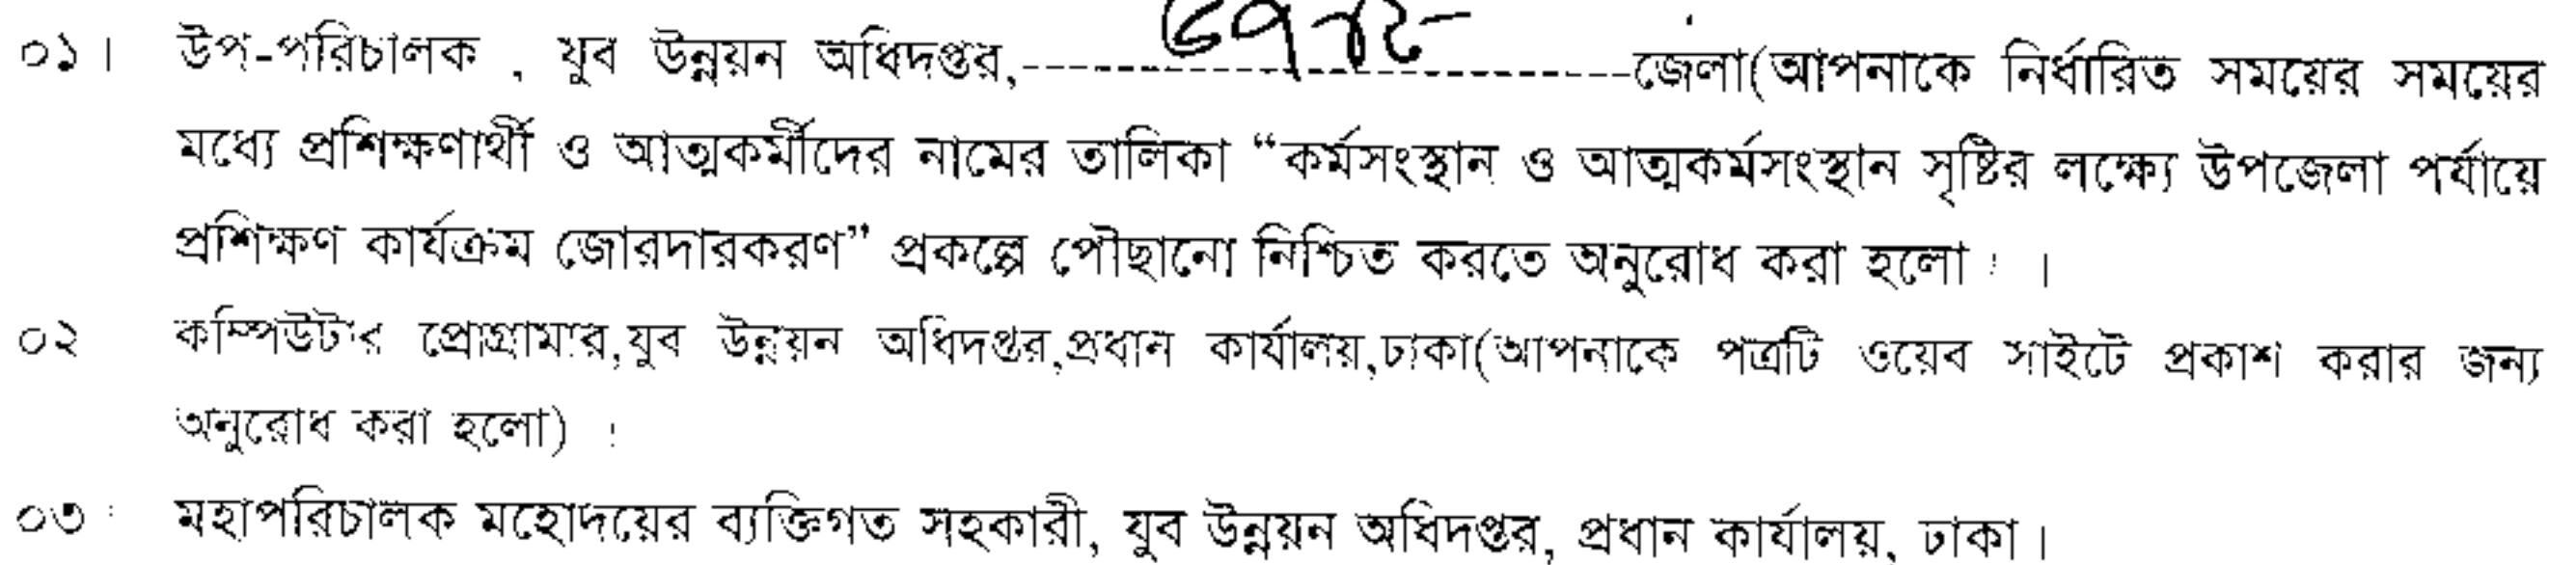 ০১। উপ-পরিচালক , যুব উন্নয়ন অধিদপ্তর,------------------------------জেলা(আপনাকে নির্ধারিত সময়ের সময়ের
মধ্যে প্রশিক্ষণার্থী ও আত্মকর্মীদের নামের তালিকা “কর্মসংস্থান ও আত্মকর্মসংস্থান সৃষ্টির লক্ষ্যে উপজেলা পর্যায়ে
প্রশিক্ষণ কার্যক্রম জোরদারকরণ” প্রকল্পে পৌছানো নিশ্চিত করতে অনুরোধ করা হলো : ।
০২ কম্পিউটার প্রোগ্রামার,যুব উন্নয়ন অধিদপ্তর,প্রধান কার্যালয়,ঢাকা(আপনাকে পত্রটি ওয়েব সাইটে প্রকাশ করার জন্য
অনুরোধ করা হলো) :
০৩ : মহাপরিচালক মহোদয়ের ব্যক্তিগত সহকারী, যুব উন্নয়ন অধিদপ্তর, প্রধান কার্যালয়, ঢাকা।